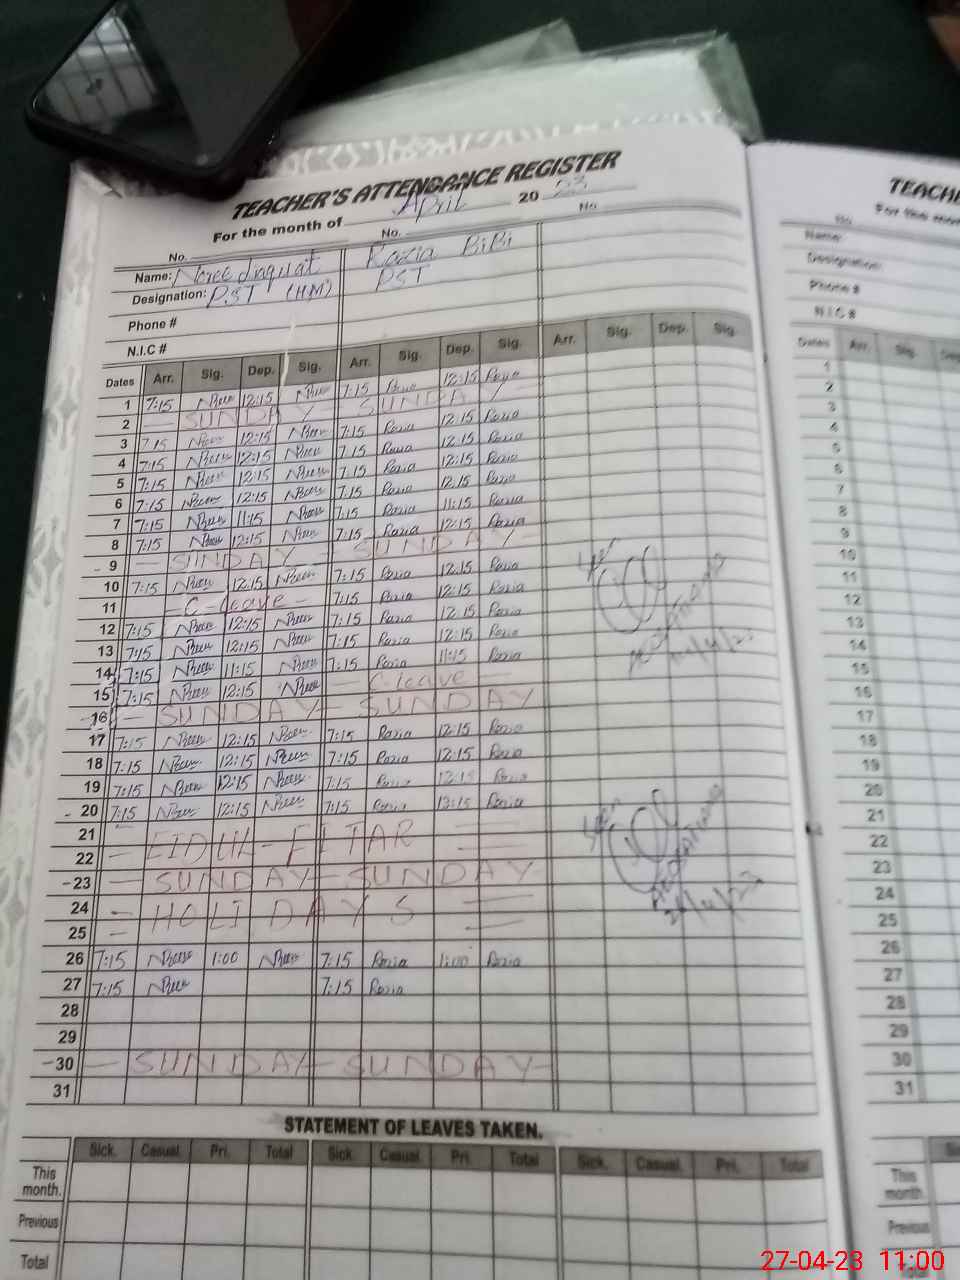 TEACHER'S ATTENDANCE REGISTER
For the month of April 20 23
No. No. No.
Name: Razia BiBi
Designation: PST (HM) PST
Phone #
N.I.C #
Dates Arr. Sig. Dep. Sig. Arr. Sig. Dep. Sig. Arr. Sig. Dep. Sig.
1 7:15 12:15 7:15 Razia 12:15 Razia
2 SUNDAY SUNDAY
3 7:15 12:15 7:15 Razia 12:15 Razia
4 7:15 12:15 7:15 Razia 12:15 Razia
5 7:15 12:15 7:15 Razia 12:15 Razia
6 7:15 12:15 7:15 Razia 12:15 Razia
7 7:15 11:15 7:15 Razia 11:15 Razia
8 7:15 12:15 7:15 Razia 12:15 Razia
9 SUNDAY SUNDAY
10 7:15 12:15 7:15 Razia 12:15 Razia
11 C-leave 7:15 Razia 12:15 Razia
12 7:15 12:15 7:15 Razia 12:15 Razia
13 7:15 12:15 7:15 Razia 12:15 Razia
14 7:15 11:15 7:15 Razia 11:15 Razia
15 7:15 12:15 C-leave
16 SUNDAY SUNDAY
17 7:15 12:15 7:15 Razia 12:15 Razia
18 7:15 12:15 7:15 Razia 12:15 Razia
19 7:15 12:15 7:15 Razia 12:15 Razia
20 7:15 12:15 7:15 Razia 12:15 Razia
21
EIDUL-FITAR
22
23 SUNDAY SUNDAY
24
HOLIDAYS
25
26 7:15 1:00 7:15 Razia 1:00 Razia
27 7:15 7:15 Razia
28
29
30 SUNDAY SUNDAY
31
STATEMENT OF LEAVES TAKEN.
Sick. Casual. Pri. Total Sick. Casual. Pri. Total Sick. Casual. Pri. Total
This month.
Previous
Total
TEACHE
For the mon
No.
Name:
Designation:
Phone #
N.I.C #
Dates Arr. Sig. Dep
1
2
3
4
5
6
7
8
9
10
11
12
13
14
15
16
17
18
19
20
21
22
23
24
25
26
27
28
29
30
31
This month.
Previous
Total
27-04-23 11:00